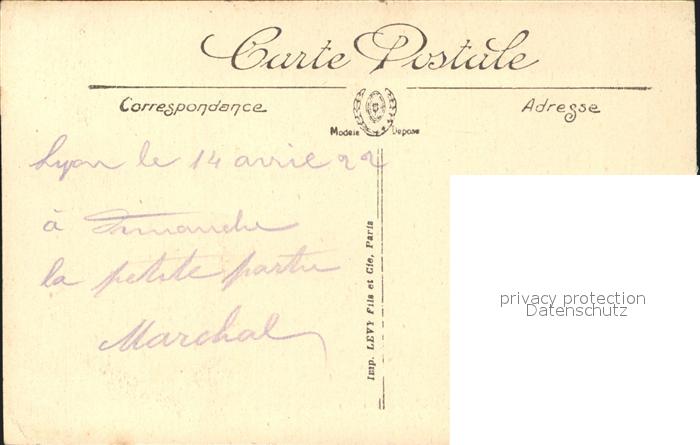 Carte Postale
Correspondance
Adresse
Modele Depose
Lyon le 14 avril 22
à Dimanche
la petite partie
Marchal
Imp. LEVY Fils et Cie, Paris
privacy protection
Datenschutz